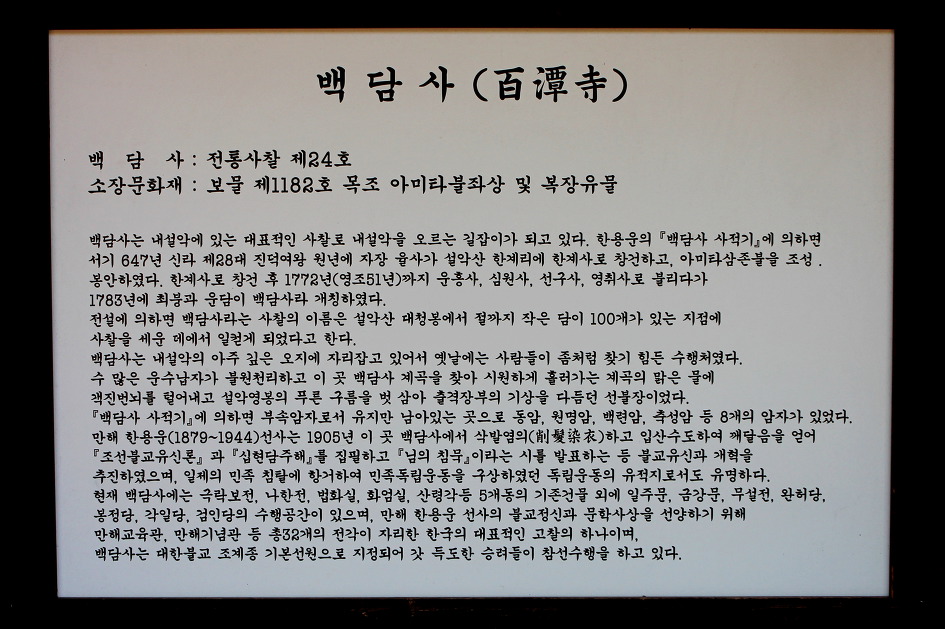 백 담 사 (百潭寺)
백 담 사 : 전통사찰 제24호
소장문화재 : 보물 제1182호 목조 아미타불좌상 및 복장유물
백담사는 내설악에 있는 대표적인 사찰로 내설악을 오르는 길잡이가 되고 있다. 한용운의 『백담사 사적기』에 의하면
서기 647년 신라 제28대 진덕여왕 원년에 자장 율사가 설악산 한계리에 한계사로 창건하고, 아미타삼존불을 조성 .
봉안하였다. 한계사로 창건 후 1772년(영조51년)까지 운흥사, 심원사, 선구사, 영취사로 불리다가
1783년에 최붕과 운담이 백담사라 개칭하였다.
전설에 의하면 백담사라는 사찰의 이름은 설악산 대청봉에서 절까지 작은 담이 100개가 있는 지점에
사찰을 세운 데에서 일컫게 되었다고 한다.
백담사는 내설악의 아주 깊은 오지에 자리잡고 있어서 옛날에는 사람들이 좀처럼 찾기 힘든 수행처였다.
수 많은 운수납자가 불원천리하고 이 곳 백담사 계곡을 찾아 시원하게 흘러가는 계곡의 맑은 물에
객진번뇌를 털어내고 설악영봉의 푸른 구름을 벗 삼아 출격장부의 기상을 다듬던 선불장이었다.
『백담사 사적기』에 의하면 부속암자로서 유지만 남아있는 곳으로 동암, 원명암, 백련암, 축성암 등 8개의 암자가 있었다.
만해 한용운(1879~1944)선사는 1905년 이 곳 백담사에서 삭발염의(削髮染衣)하고 입산수도하여 깨달음을 얻어
『조선불교유신론』 과 『십현담주해』를 집필하고 『님의 침묵』이라는 시를 발표하는 등 불교유신과 개혁을
추진하였으며, 일제의 민족 침탈에 항거하여 민족독립운동을 구상하였던 독립운동의 유적지로서도 유명하다.
현재 백담사에는 극락보전, 나한전, 법화실, 화엄실, 산령각등 5개동의 기존건물 외에 일주문, 금강문, 무설전, 완허당,
봉정당, 각일당, 검인당의 수행공간이 있으며, 만해 한용운 선사의 불교정신과 문학사상을 선양하기 위해
만해교육관, 만해기념관 등 총32개의 전각이 자리한 한국의 대표적인 고찰의 하나이며,
백담사는 대한불교 조계종 기본선원으로 지정되어 갓 득도한 승려들이 참선수행을 하고 있다.